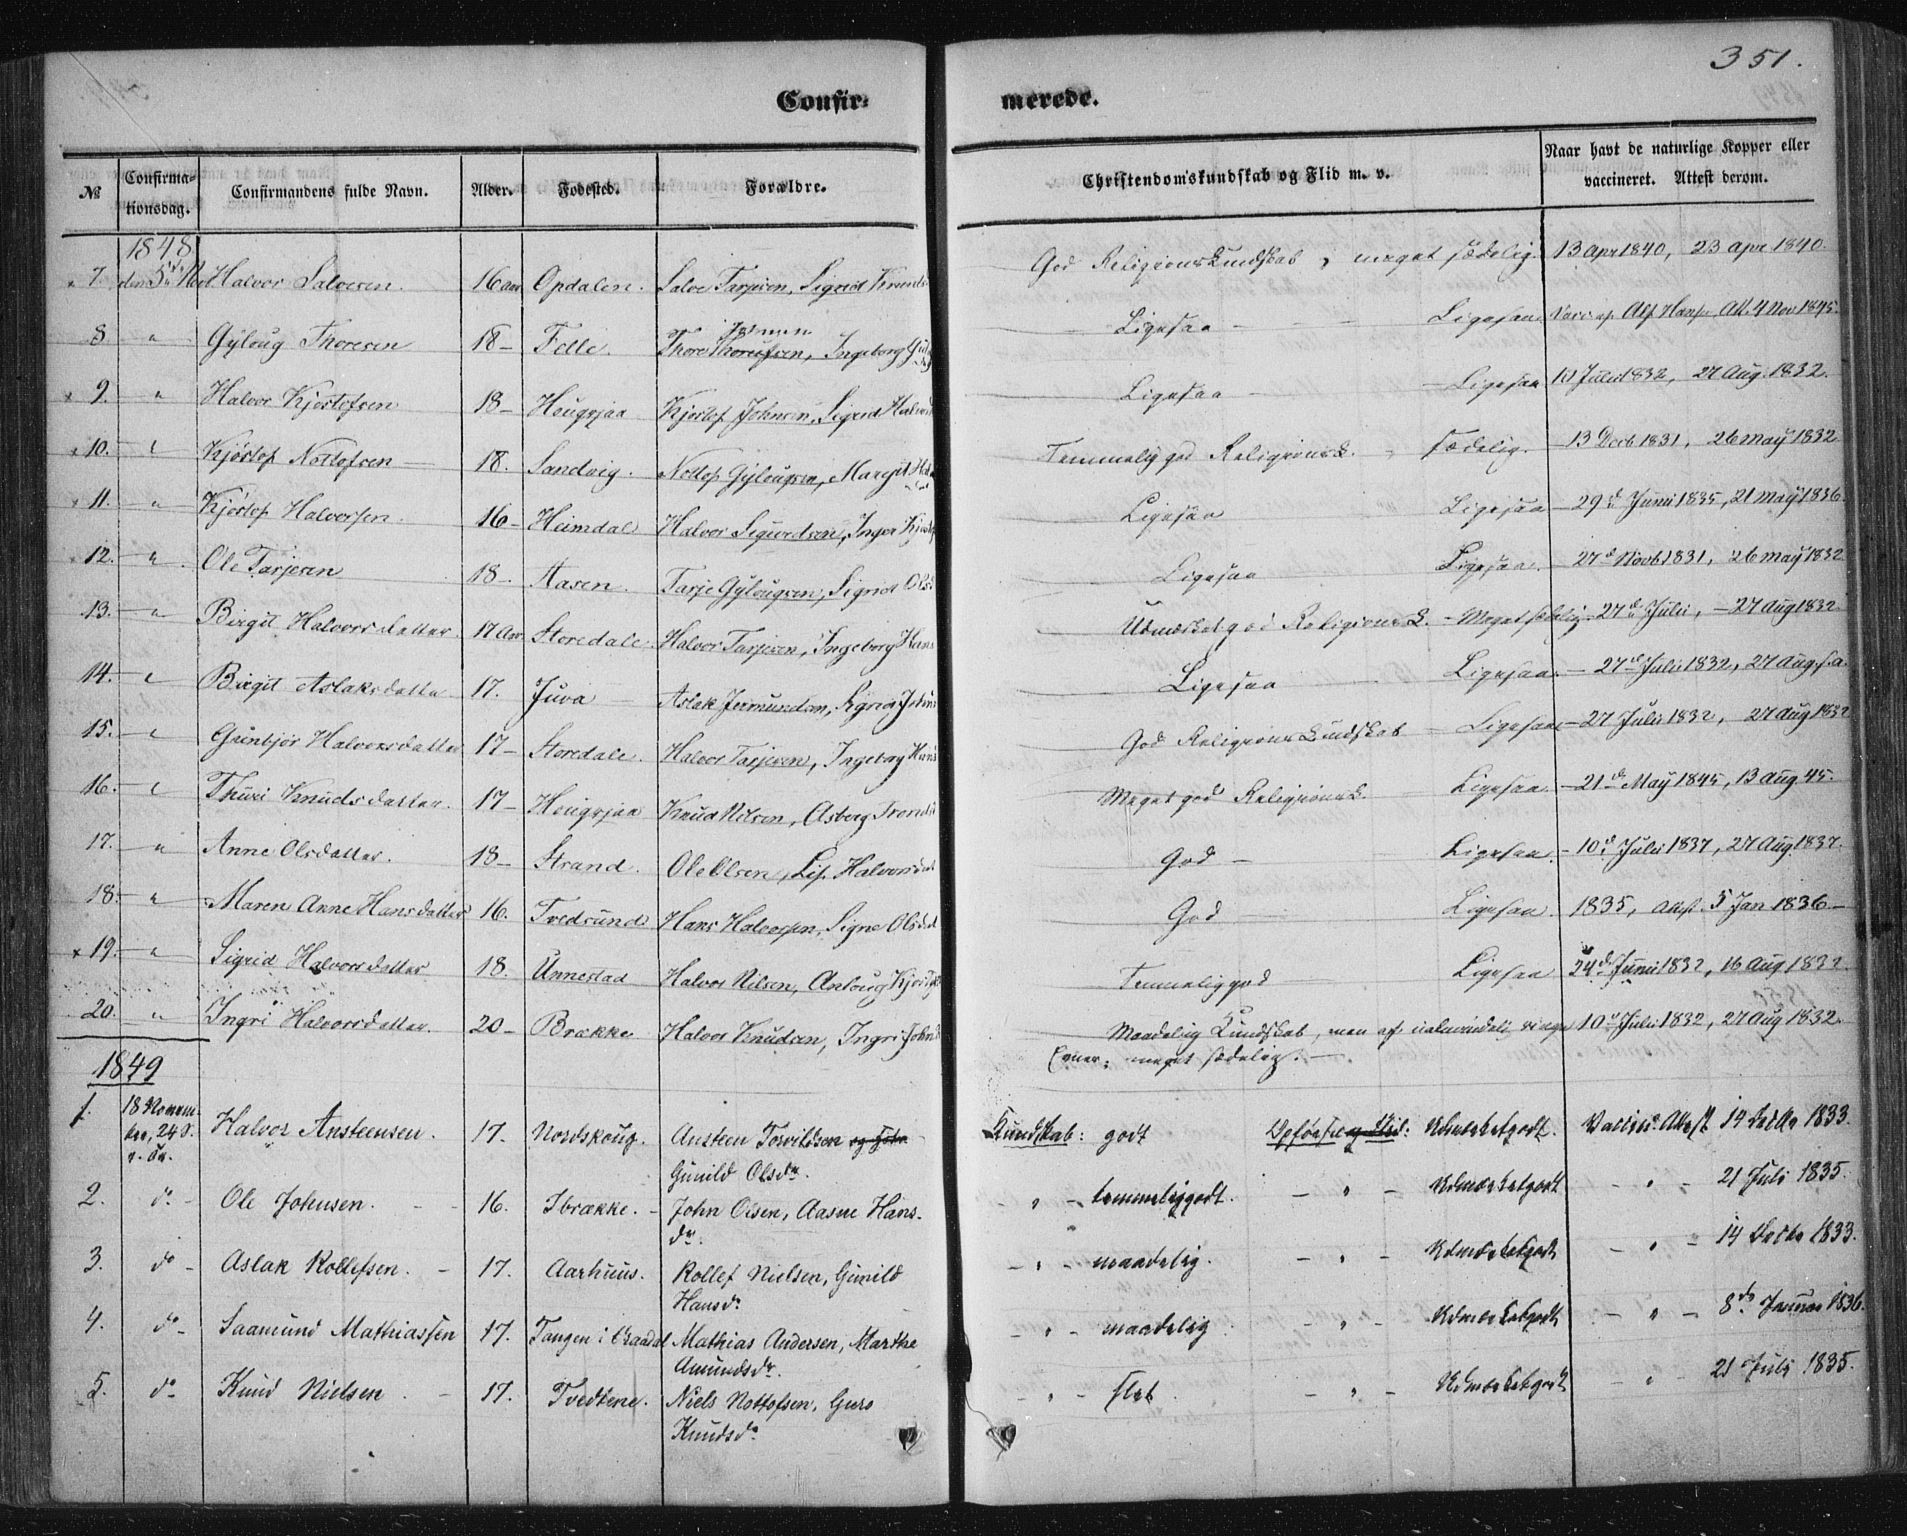 351.
Confir- merede.
№ Confirma-tionsdag. Confirmandens fulde Navn. Alder. Fødested. Forældre. Christendomskundskab og Flid m. v. Naar havt de naturlige Kopper eller vaccineret. Attest derom.
1848
7. den 5te Nov Halvor Salvesen. 16 aar Opdalen. Salve Tarjesen, Sigrid Knuds God Religionskundskab, meget sædelig. 13 apr 1840, 23 apr 1840.
8 " Gÿloug Thoresen 18 – Felle. Thore, Ingeborg Ligesaa – Ligesaa 4 Nov 1845.
9. " Halvor Kjøstofsen 18 – Hougsjaa Kjøstof Johnsen, Sigrid Halvord Ligesaa – Ligesaa 10 Julii 1832, 27 Aug. 1832.
10. " Kjøstof Nottofsen 18. Sandvig. Nottof Gÿlougsen, Margit Temmelig god Religionsk. " sædelig. – 13 Decb 1831, 26 maÿ 1832
11. " Kjøstof Halvorsen. 16 – Heimdal Halvor Sigurdsen, Inger Kjøstof Ligesaa " Ligesaa – 29d Junii 1835, 21 maÿ 1836
12. " Ole Tarjesen 18 – Aasen. Tarje Gÿlougsen, Sigrid Ols Ligesaa Ligesaa. – 27d Novb 1831, 26 maÿ 1832
13. " Birgit Halvorsdatter. 17 Aar. Storedale. Halvor Tarjesen, Ingeborg Hans Udmærket god Religionsk. – Meget sædelig – 27d Julii, – 27 Aug 1832
14. " Birgit Aslaksdatter 17. Juva – Aslak Jermundsen, Sigrid Johns Ligesaa – Ligesaa. – 27d Julii 1832, 27 Aug. s. a.
15. " Gunbjør Halvorsdatter 17 – Storedale. Halvor Tarjesen, Ingeborg Hans God Religionskundskab – Ligesaa – 27 Julii 1832, 27 Aug 1832
16. " Thuri Knudsdatter. 17 – Hougsjaa Knud Nilsen, Asberg Trond Meget god Religionsk. Ligesaa. – 21d Maÿ 1845, 13 aug 45.
17. " Anne Olsdatter. 18 – Strand. Ole Olsen, Lis. Halvorsdat God – Ligesaa. – 10d Julii 1837, 27 Aug. 1837.
18. " Maren Anne Hansdatter 16. Tvedsund Hans Halvorsen, Signe Olsdat God Ligesaa. 1835, attest 5 Jan 1836 –
19. " Sigrid Halvorsdatter 18. Unnestad Halvor Nilsen, Anloug Kjøst Temmelig god Ligesaa 24d Junii 1832, 16 Aug 1832.
20. " Ingri Halvorsdatter. 20 – Brække Halvor Knudsen, Ingri Johns Maadelig Kundskab, men af ualmindelig ringe 10d Julii 1832, 27 Aug 1832.
Evner; meget sædelig. –
1849
1. 18 Novem-
ber, 24 S. Halvor Ansteensen. 17. Nordskoug. Ansteen Torvildsen Kundskab: godt Opførsel og Flid: Udmærket godt. Vaccin. Attest 14 Decbr 1833.
Gunild Olsdr.
2. do – Ole Johnsen. 16. Ibrække. – John Olsen, Aasne Hans- – " – temmeliggodt. – " – Udmærketgodt – " – 21 Juli 1835.
dr.
3. do – Aslak Rollefsen. – 17. Aarhuus. Rollef Nielsen, Gunild – " – maadelig. – " – Udmærketgodt – " – 14 Decbr 1833.
Hansdr
4. do – Saamund Mathiassen 17. Tangen i Vraadal Mathias Andersen, Marthe – " – maadelig. – " – Udmærketgodt – " – 8de Januar 1836.
Amundsdr.
5. do Knud Nielsen. – 17. Tvedtene. Niels Nottofsen, Guro – " – slet. – " – Udmærketgodt – " – 21 Juli 1835.
Knudsdr